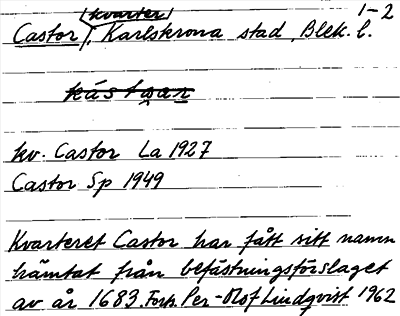 (kvarter) 1-2
Castor, Karlskrona stad, Blek. l.
kv. Castor La 1927
Castor Sp 1949
Kvarteret Castor har fått sitt namn
hämtat från befästningsförslaget
av år 1683. Forts. Per-Olof Lindqvist 1962